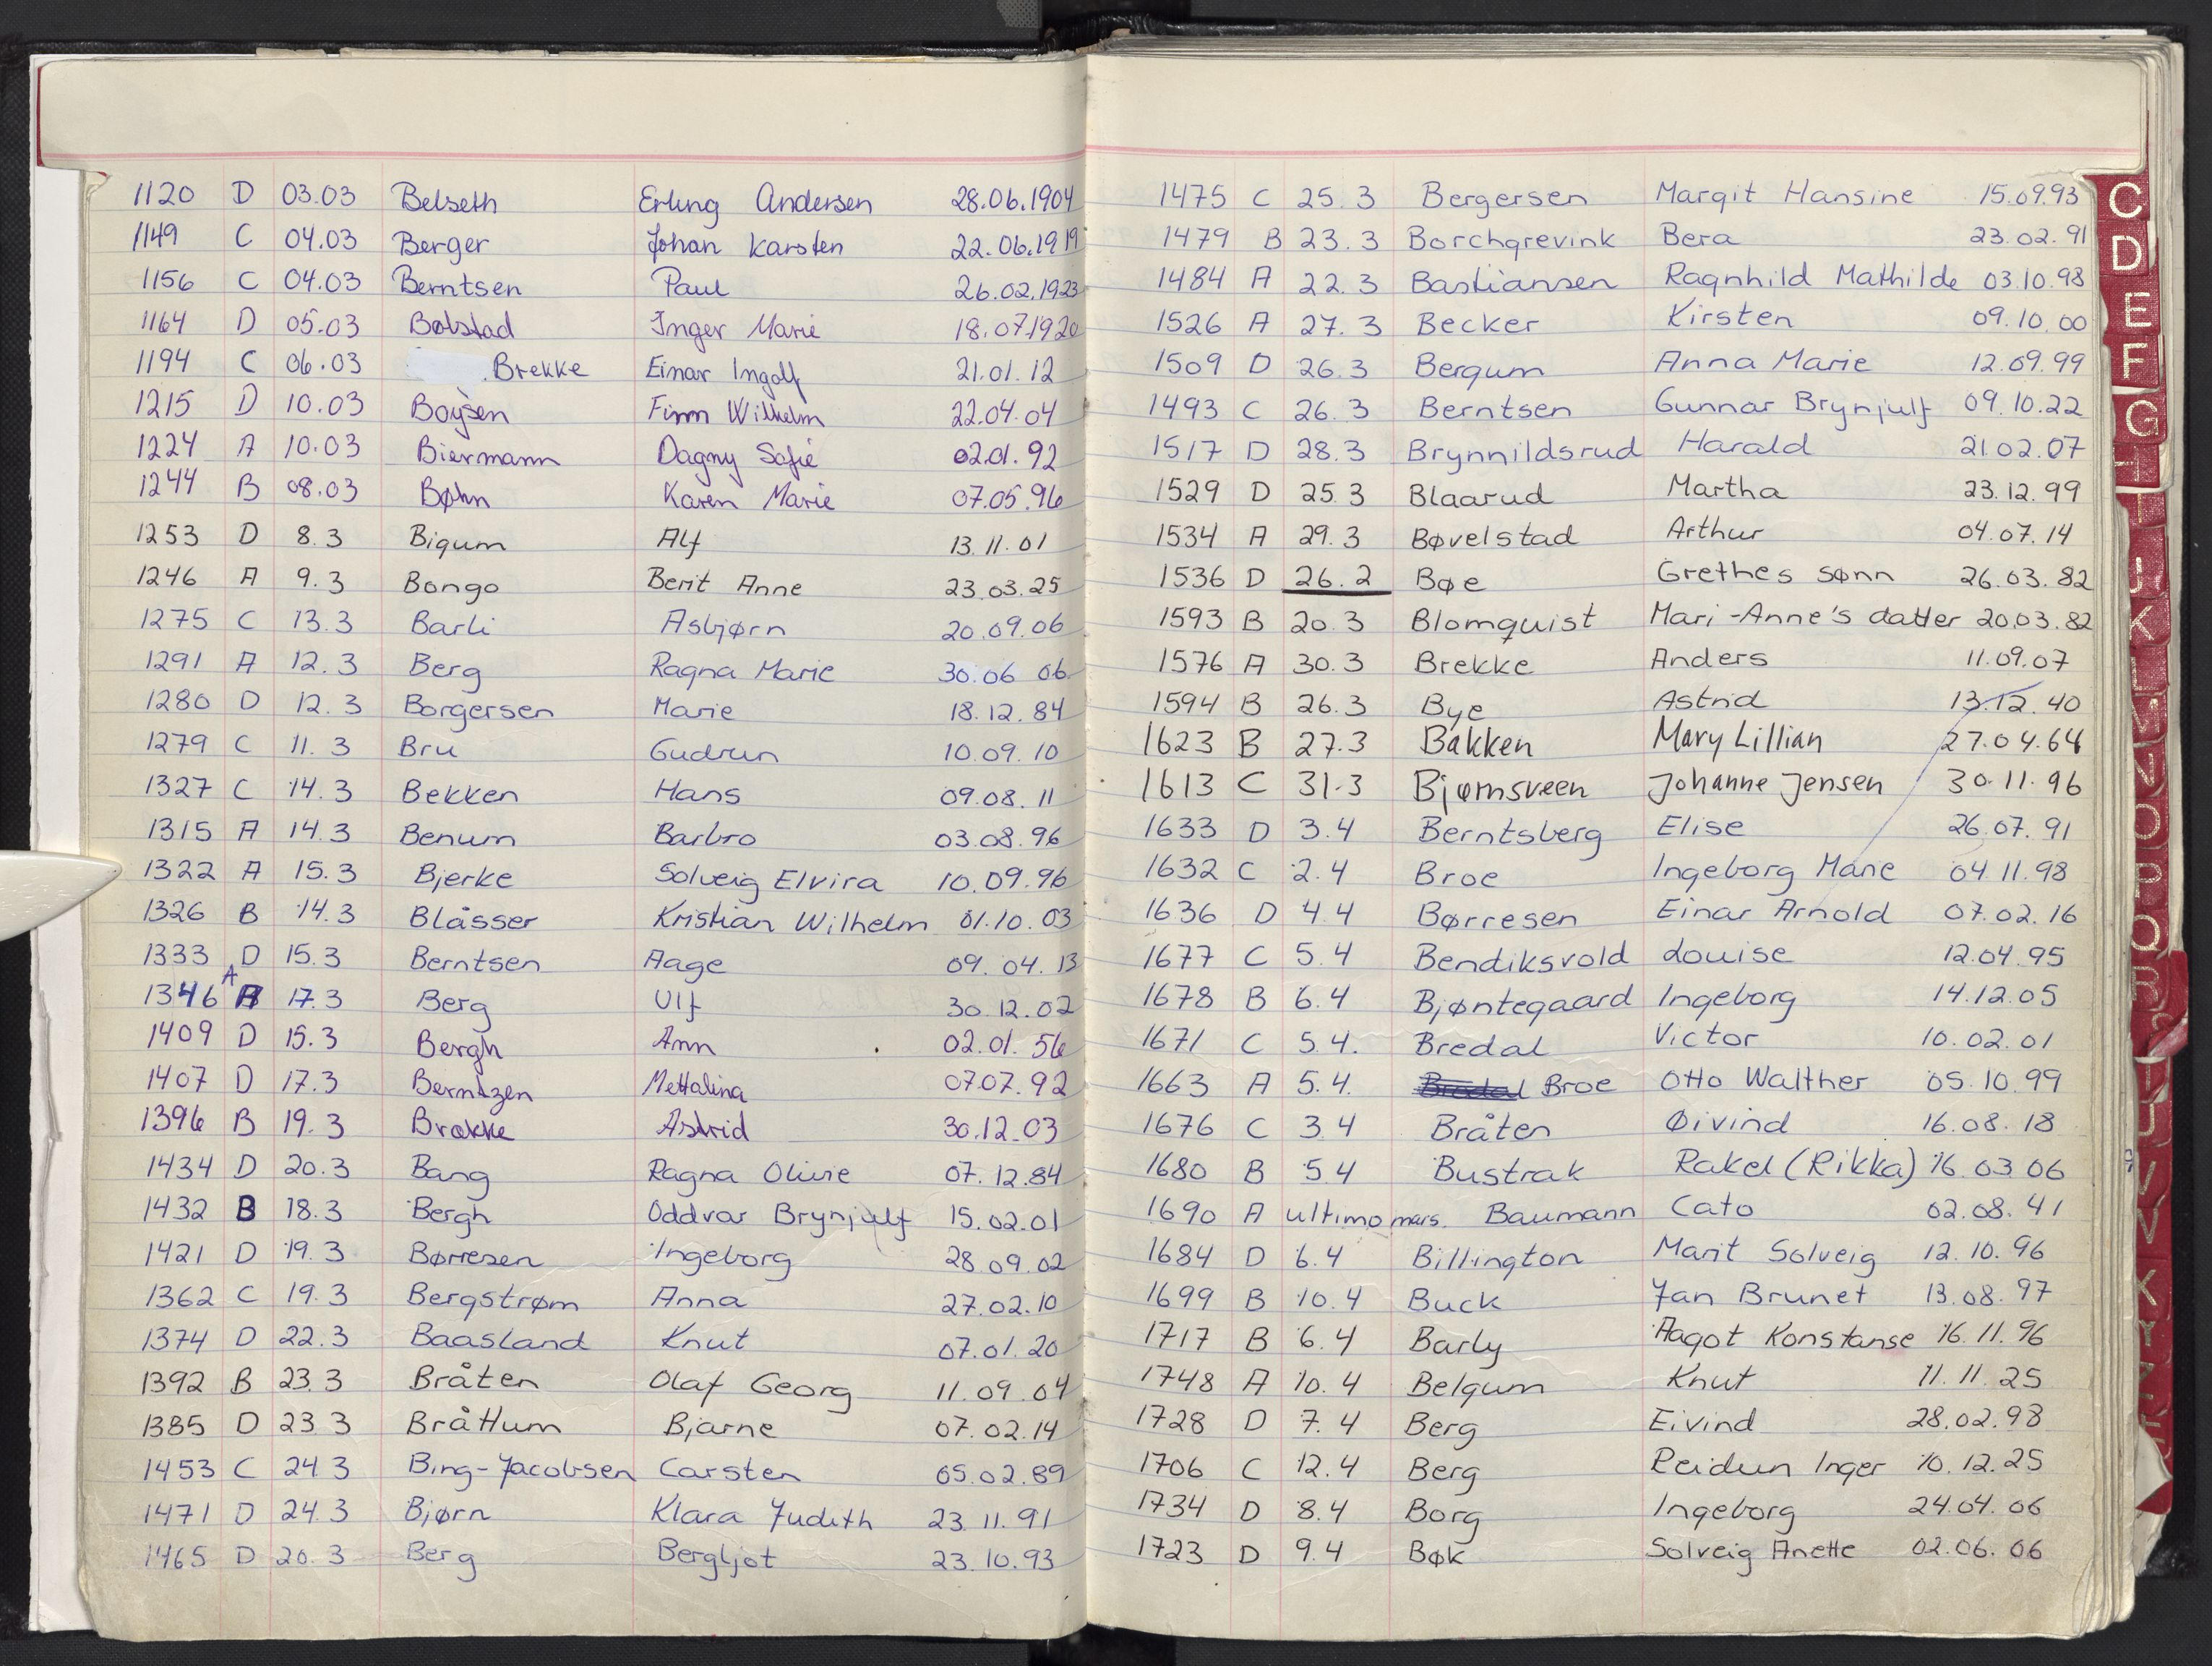 1120 D 03.03 Belseth Erling Andersen 28.06.1904
1149 C 04.03 Berger Johan Karsten 22.06.1919
1156 C 04.03 Berntsen Paul 26.02.1923
1164 D 05.03 Bølstad Inger Marie 18.07.1920
1194 C 06.03 Brekke Einar Ingolf 21.01.12
1215 D 10.03 Boysen Finn Wilhelm 22.04.04
1224 A 10.03 Biermann Dagny Sofie 02.01.92
1244 B 08.03 Bøhn Karen Marie 07.05.96
1253 D 8.3 Bigum Alf 13.11.01
1246 A 9.3 Bongo Berit Anne 23.03.25
1275 C 13.3 Barli Asbjørn 20.09.06
1291 A 12.3 Berg Ragna Marie 30.06 06
1280 D 12.3 Borgersen Marie 18.12.84
1279 C 11.3 Bru Gudrun 10.09.10
1327 C 14.3 Bekken Hans 09.08.11
1315 A 14.3 Benum Barbro 03.08.96
1322 A 15.3 Bjerke Solveig Elvira 10.09.96
1326 B 14.3 Blåsser Kristian Wilhelm 01.10.03
1333 D 15.3 Berntsen Aage 09.04.13
1346 A 17.3 Berg Ulf 30.12.02
1409 D 15.3 Bergh Ann 02.01.56
1407 D 17.3 Berntzen Mettalina 07.07.92
1396 B 19.3 Brække Astrid 30.12.03
1434 D 20.3 Bang Ragna Olivie 07.12.84
1432 B 18.3 Bergh Oddvar Brynjulf 15.02.01
1421 D 19.3 Børresen Ingeborg 28.09.02
1362 C 19.3 Bergstrøm Anna 27.02.10
1374 D 22.3 Baasland Knut 07.01.20
1392 B 23.3 Bråten Olaf Georg 11.09.04
1385 D 23 3 Bråttum Bjarne 07.02.14
1453 C 24.3 Bing-Jacobsen Carsten 05.02.89
1471 D 24.3 Bjørn Klara Judith 23.11.91
1465 D 20.3 Berg Bergljot 23.10.93
1475 C 25.3 Bergersen Margit Hansine 15.09.93
1479 B 23.3 Borchgrevink Bera 23.02.91
1484 A 22.3 Bastiansen Ragnhild Mathilde 03.10.98
1526 A 27.3 Becker Kirsten 09.10.00
1509 D 26.3 Bergum Anna Marie 12.09.99
1493 C 26.3 Berntsen Gunnar Brynjulf 09.10.22
1517 D 28.3 Brynnildsrud Harald 21.02.07
1529 D 25.3 Blaarud Martha 23.12.99
1534 A 29.3 Bøvelstad Arthur 04.07.14
1536 D 26.2 Bøe Grethes sønn 26.03.82
1593 B 20.3 Blomquist Mari-Anne's datter 20.03.82
1576 A 30.3 Brekke Anders 11.09.07
1594 B 26.3 Bye Astrid 13.12.40
1623 B 27.3 Bakken Mary Lillian 27.04.64
1613 C 31.3 Bjørnsveen Johanne Jensen 30.11.96
1633 D 3.4 Berntsberg Elise 26.07.91
1632 C 2.4 Broe Ingeborg Marie 04.11.98
1636 D 4.4 Børresen Einar Arnold 07.02.16
1677 C 5.4 Bendiksvold Louise 12.04.95
1678 B 6.4 Bjøntegaard Ingeborg 14.12.05
1671 C 5.4. Bredal Victor 10.02.01
1663 A 5.4. Bredal Broe Otto Walther 05.10.99
1676 C 3.4 Bråten Øivind 16.08.18
1680 B 5.4 Bustrak Rakel (Rikka) 16.03.06
1690 A ultimo mars. Baumann Cato 02.08.41
1684 D 6.4 Billington Marit Solveig 12.10.96
1699 B 10.4 Buck Jan Brunet 13.08.97
1717 B 6.4 Barly Aagot Konstanse 16.11.96
1748 A 10.4 Belgum Knut 11.11.25
1728 D 7.4 Berg Eivind 28.02.98
1706 C 12.4 Berg Reidun Inger 10.12.25
1734 D 8.4 Borg Ingeborg 24.04.06
1723 D 9.4 Bøk Solveig Anette 02.06.06
C
D
E
F
G
H
I
J
K
L
N
O
P
Q
R
T
U
V
X